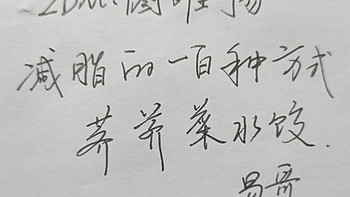 减脂的一百种方式
荠荠菜水饺.
易哥